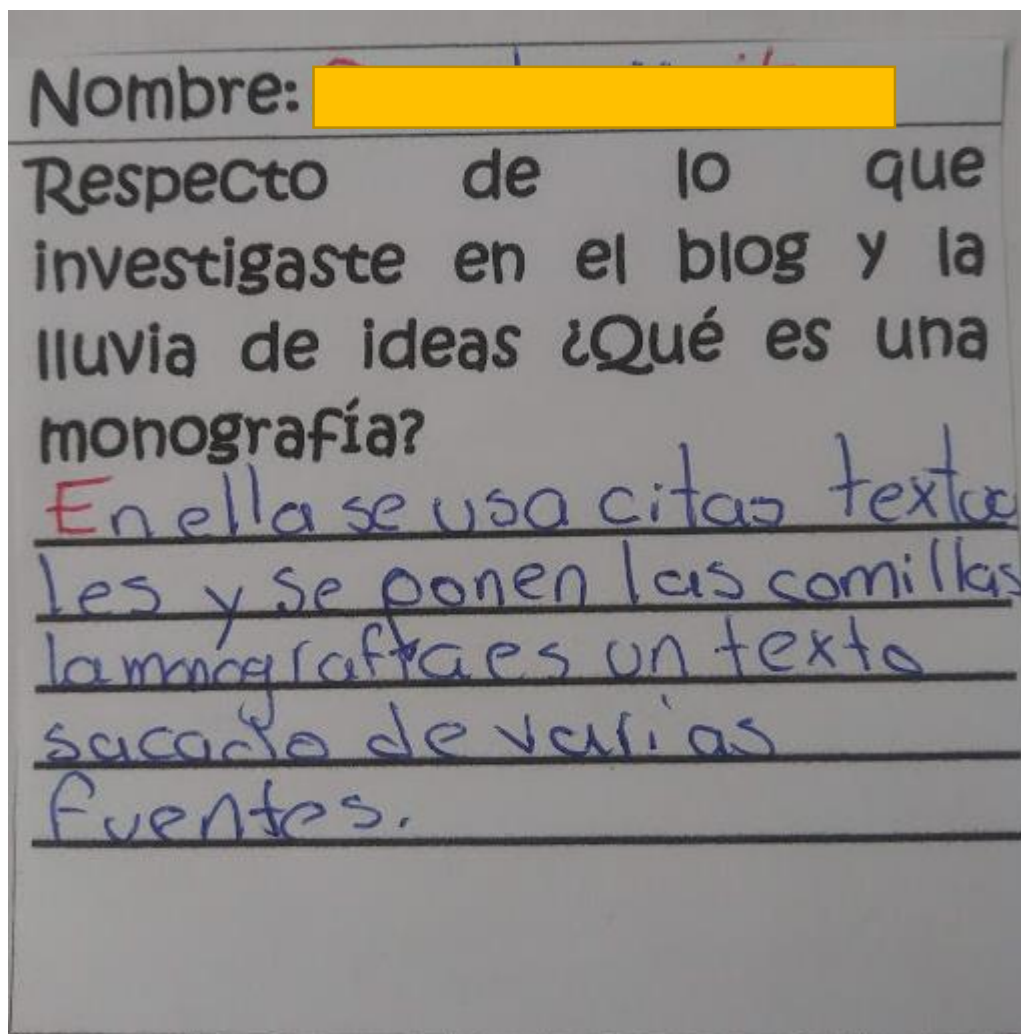 Nombre:
Respecto de lo que
investigaste en el blog y la
lluvia de ideas ¿Qué es una
monografía?
En ella se usa citas textua
les y se ponen las comillas
la monografía es un texto
sacado de varias
fuentes.